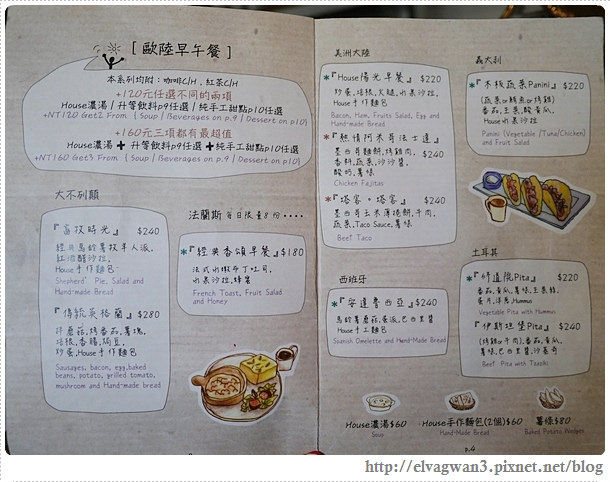 [ 歐陸早午餐 ]
本系列均附：咖啡C/H，紅茶C/H
+120元任選不同的兩項
House濃湯 / 升等飲料p9任選 / 純手工甜點p10任選
+NT120 Get2 From ﹛Soup / Beverages on p.9 / Dessert on p10﹜
+160元三項都有最超值
House濃湯 + 升等飲料p9任選 + 純手工甜點p10任選
+NT160 Get3 From ﹛Soup / Beverages on p.9 / Dessert on p10﹜
大不列顛
『富牧時光』 $240
經典馬鈴薯牧羊人派,
紅酒醋沙拉,
House手作麵包
Shepherd' Pie, Salad and
Hand-made Bread
『傳統英格蘭』 $280
拌蘑菇,烤番茄,薯塊,
培根,香腸,焗豆,
炒蛋,House手作麵包
Sausages, bacon, egg,baked
beans, potato, grilled tomato,
mushroom and Hand-made bread
法蘭斯 每日限量8份‥‥
*『經典香頌早餐』 $180
法式水嫩布丁吐司,
水果沙拉,蜂蜜
French Toast, Fruit Salad
and Honey
美洲大陸
*『House陽光早餐』 $220
炒蛋,培根,火腿,水果沙拉,
House手作麵包
Bacon, Ham, Fruits Salad, Egg and
Hand-made Bread
*『熱情阿米哥法士達』
墨西哥麵餅,烤雞肉, $240
香料,蔬菜,沙沙醬,
酸奶,薯味
Chicken Fajitas
*『塔客。塔客』 $240
墨西哥玉米薄捲餅,牛肉,
蔬菜,Taco Sauce,薯味
Beef Taco
西班牙
*『安達魯西亞』 $240
馬鈴薯蘑菇,蛋派,巴西里醬
House手工麵包
Spanish Omelette and Hand-Made Bread
義大利
*『木板蔬菜Panini』 $220
(蔬菜or鮪魚or烤雞)
番茄,生菜,酸黃瓜,
水果沙拉
Panini (Vegetable /Tuna/Chicken)
and Fruit Salad
土耳其
*『修道院Pita』 $220
番茄,黃瓜,薯球,生菜絲,
蛋片,洋蔥,Hummus
Vegetable Pita with Hummus
『伊斯坦堡Pita』 $240
(烤雞or牛肉),番茄,黃瓜,
薯球,巴西里醬,沙塞奇
Beef Pita with Tzaziki
House濃湯$60
Soup
House手作麵包(2個)$60
Hand-Made Bread
薯條$80
Baked Potato Wedges
p.4
http://elvagwan3.pixnet.net/blog